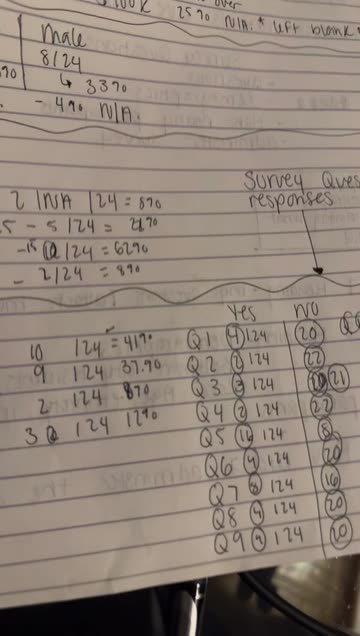 over
$100K 25% N/A. * left blank *
Male
8/24
↳ 33%
- 4% N/A.
2 INA /24 = 8%
5 - 5/24 = 21%
-15 /24 = 62%
- 2/24 = 8%
Survey Ques
responses
Yes NO
10 /24 = 41%
9 /24 37.%
2 /24 8%
3 /24 12%
Q1 4/24 20
Q2 2/24 22
Q3 3/24 21
Q4 2/24 22
Q5 16/24 8
Q6 4/24 20
Q7 8/24 16
Q8 4/24 20
Q9 4/24 20